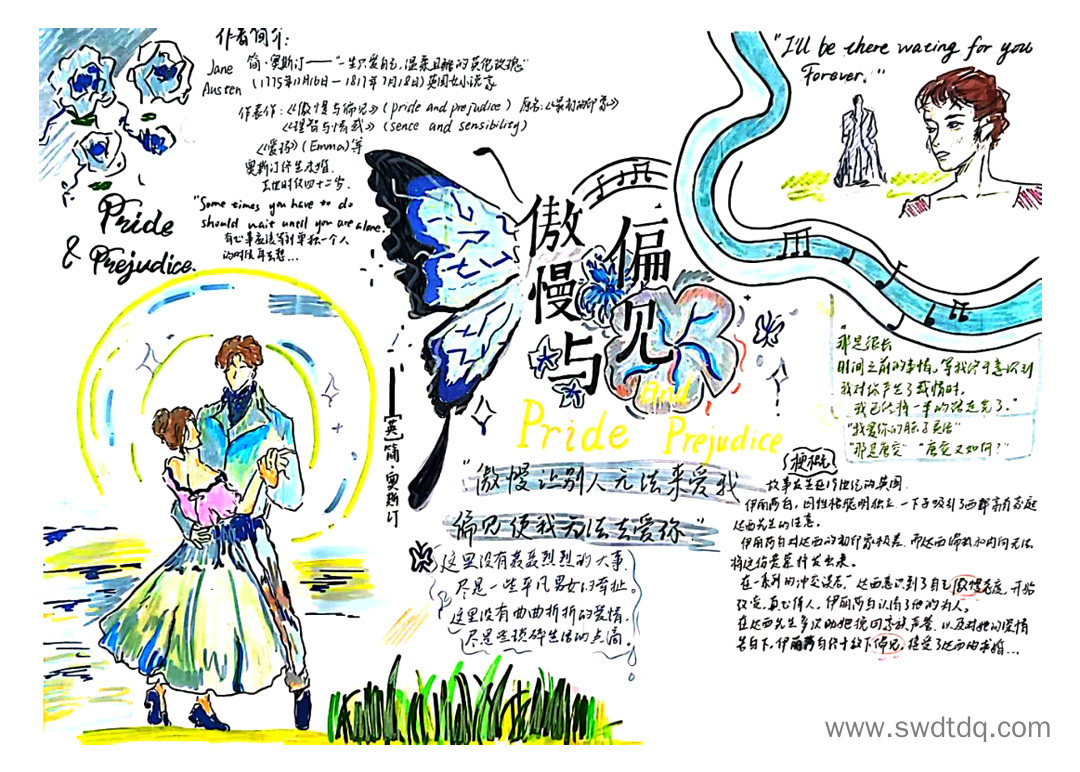 作者简介:
Jane Austen
简·奥斯汀——"一生只爱自己,温柔且 的英伦玫瑰"
(1775年12月16日—1817年7月18日)英国女小说家
代表作:《傲慢与偏见》(pride and prejudice) 原名:《最初的印象》
《理智与情感》(sence and sensibility)
《爱玛》(Emma)等
奥斯汀终生未婚.
去世时仅四十二岁.
"Some times you have to do
should wait until you are alone.
有心事应该等到单独一个人
的时候再去想...
Pride
& Prejudice.
"I'll be there wating for you
Forever."
傲慢与
偏见
Pride and Prejudice
——[英]简·奥斯汀
"傲慢让别人无法来爱我
偏见使我无法去爱你."
这里没有轰轰烈烈的大事.
尽是一些平凡男女的牵扯。
这里没有曲曲折折的爱情.
尽是些琐碎生活的点滴.
"那是很长
时间之前的事情。等我终于意识到
我对你产生了感情时.
我已经将一半的路走完了."
"我爱你的脑子灵活"
"那是唐突" "唐突又如何?"
梗概
故事发生在19世纪的英国.
伊丽莎白,因性格聪明独立.一下子吸引了西 高
达西先生的注意。
伊丽莎白对达西的初印象极差.而达西 内向无法
将这份爱意抒发出来。
在一系列的冲突误会,达西意识到了自己傲慢态度,开始
改变,真心待人。伊丽莎白认清了他的为人。
在达西先生多次助她挽回家族声誉.以及对她的深情
告白下,伊丽莎白终于放下偏见,接受了达西的求婚...
www.swdtdq.com